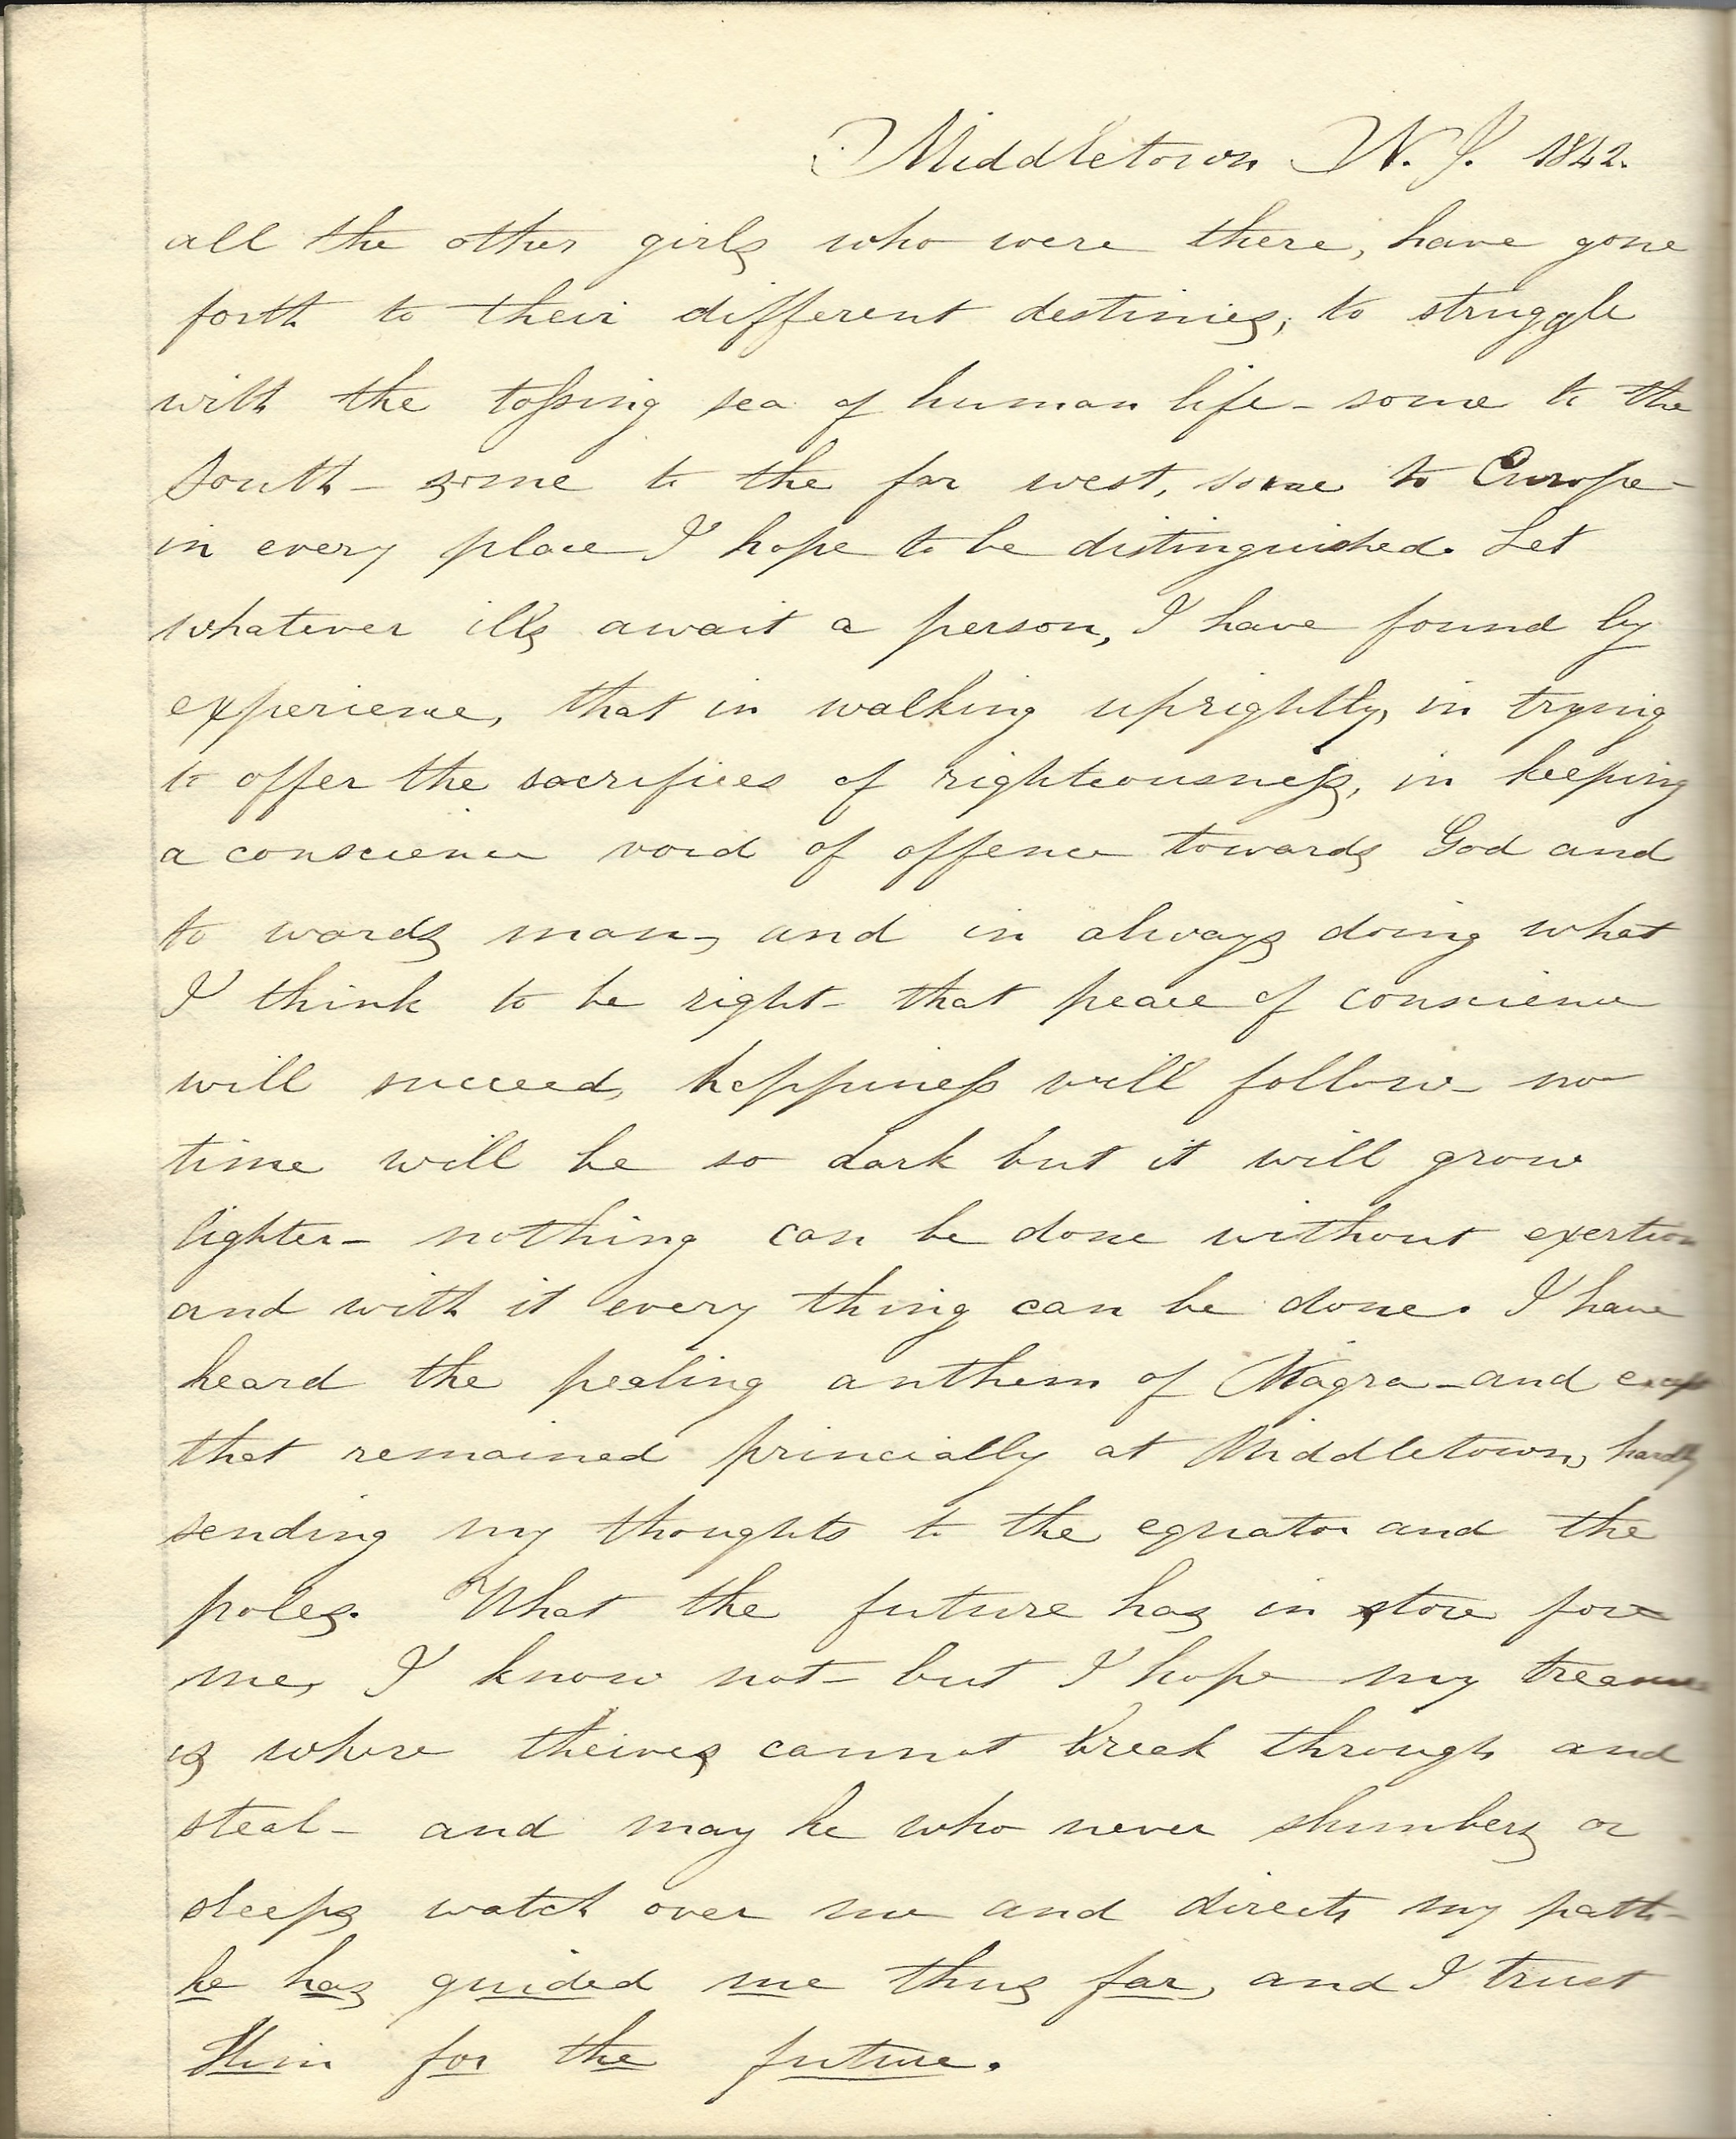 Middletown N. J. 1842.
all the other girls who were there, have gone
forth to their different destinies; to struggle
with the tossing sea of human life - some to the
South - some to the far west, some to Europe -
in every place I hope to be distinguished. Let
whatever ills await a person, I have found by
experience, that in walking uprightly, in trying
to offer the sacrifices of righteousness, in keeping
a conscience void of offence towards God and
to wards man, and in always doing what
I think to be right - that peace of conscience
will succeed, happiness will follow - no
time will be so dark but it will grow
lighter - nothing can be done without exertion
and with it every thing can be done. I have
heard the pealing anthem of Niagra - and except
that remained princially at Middletown, hardly
sending my thoughts to the equator and the
poles. What the future has in store for
me, I know not - but I hope my treasure
is where theives cannot break through and
steal - and may he who never slumbers or
sleeps watch over me and direct my path -
he has guided me thus far, and I trust
Him for the future.